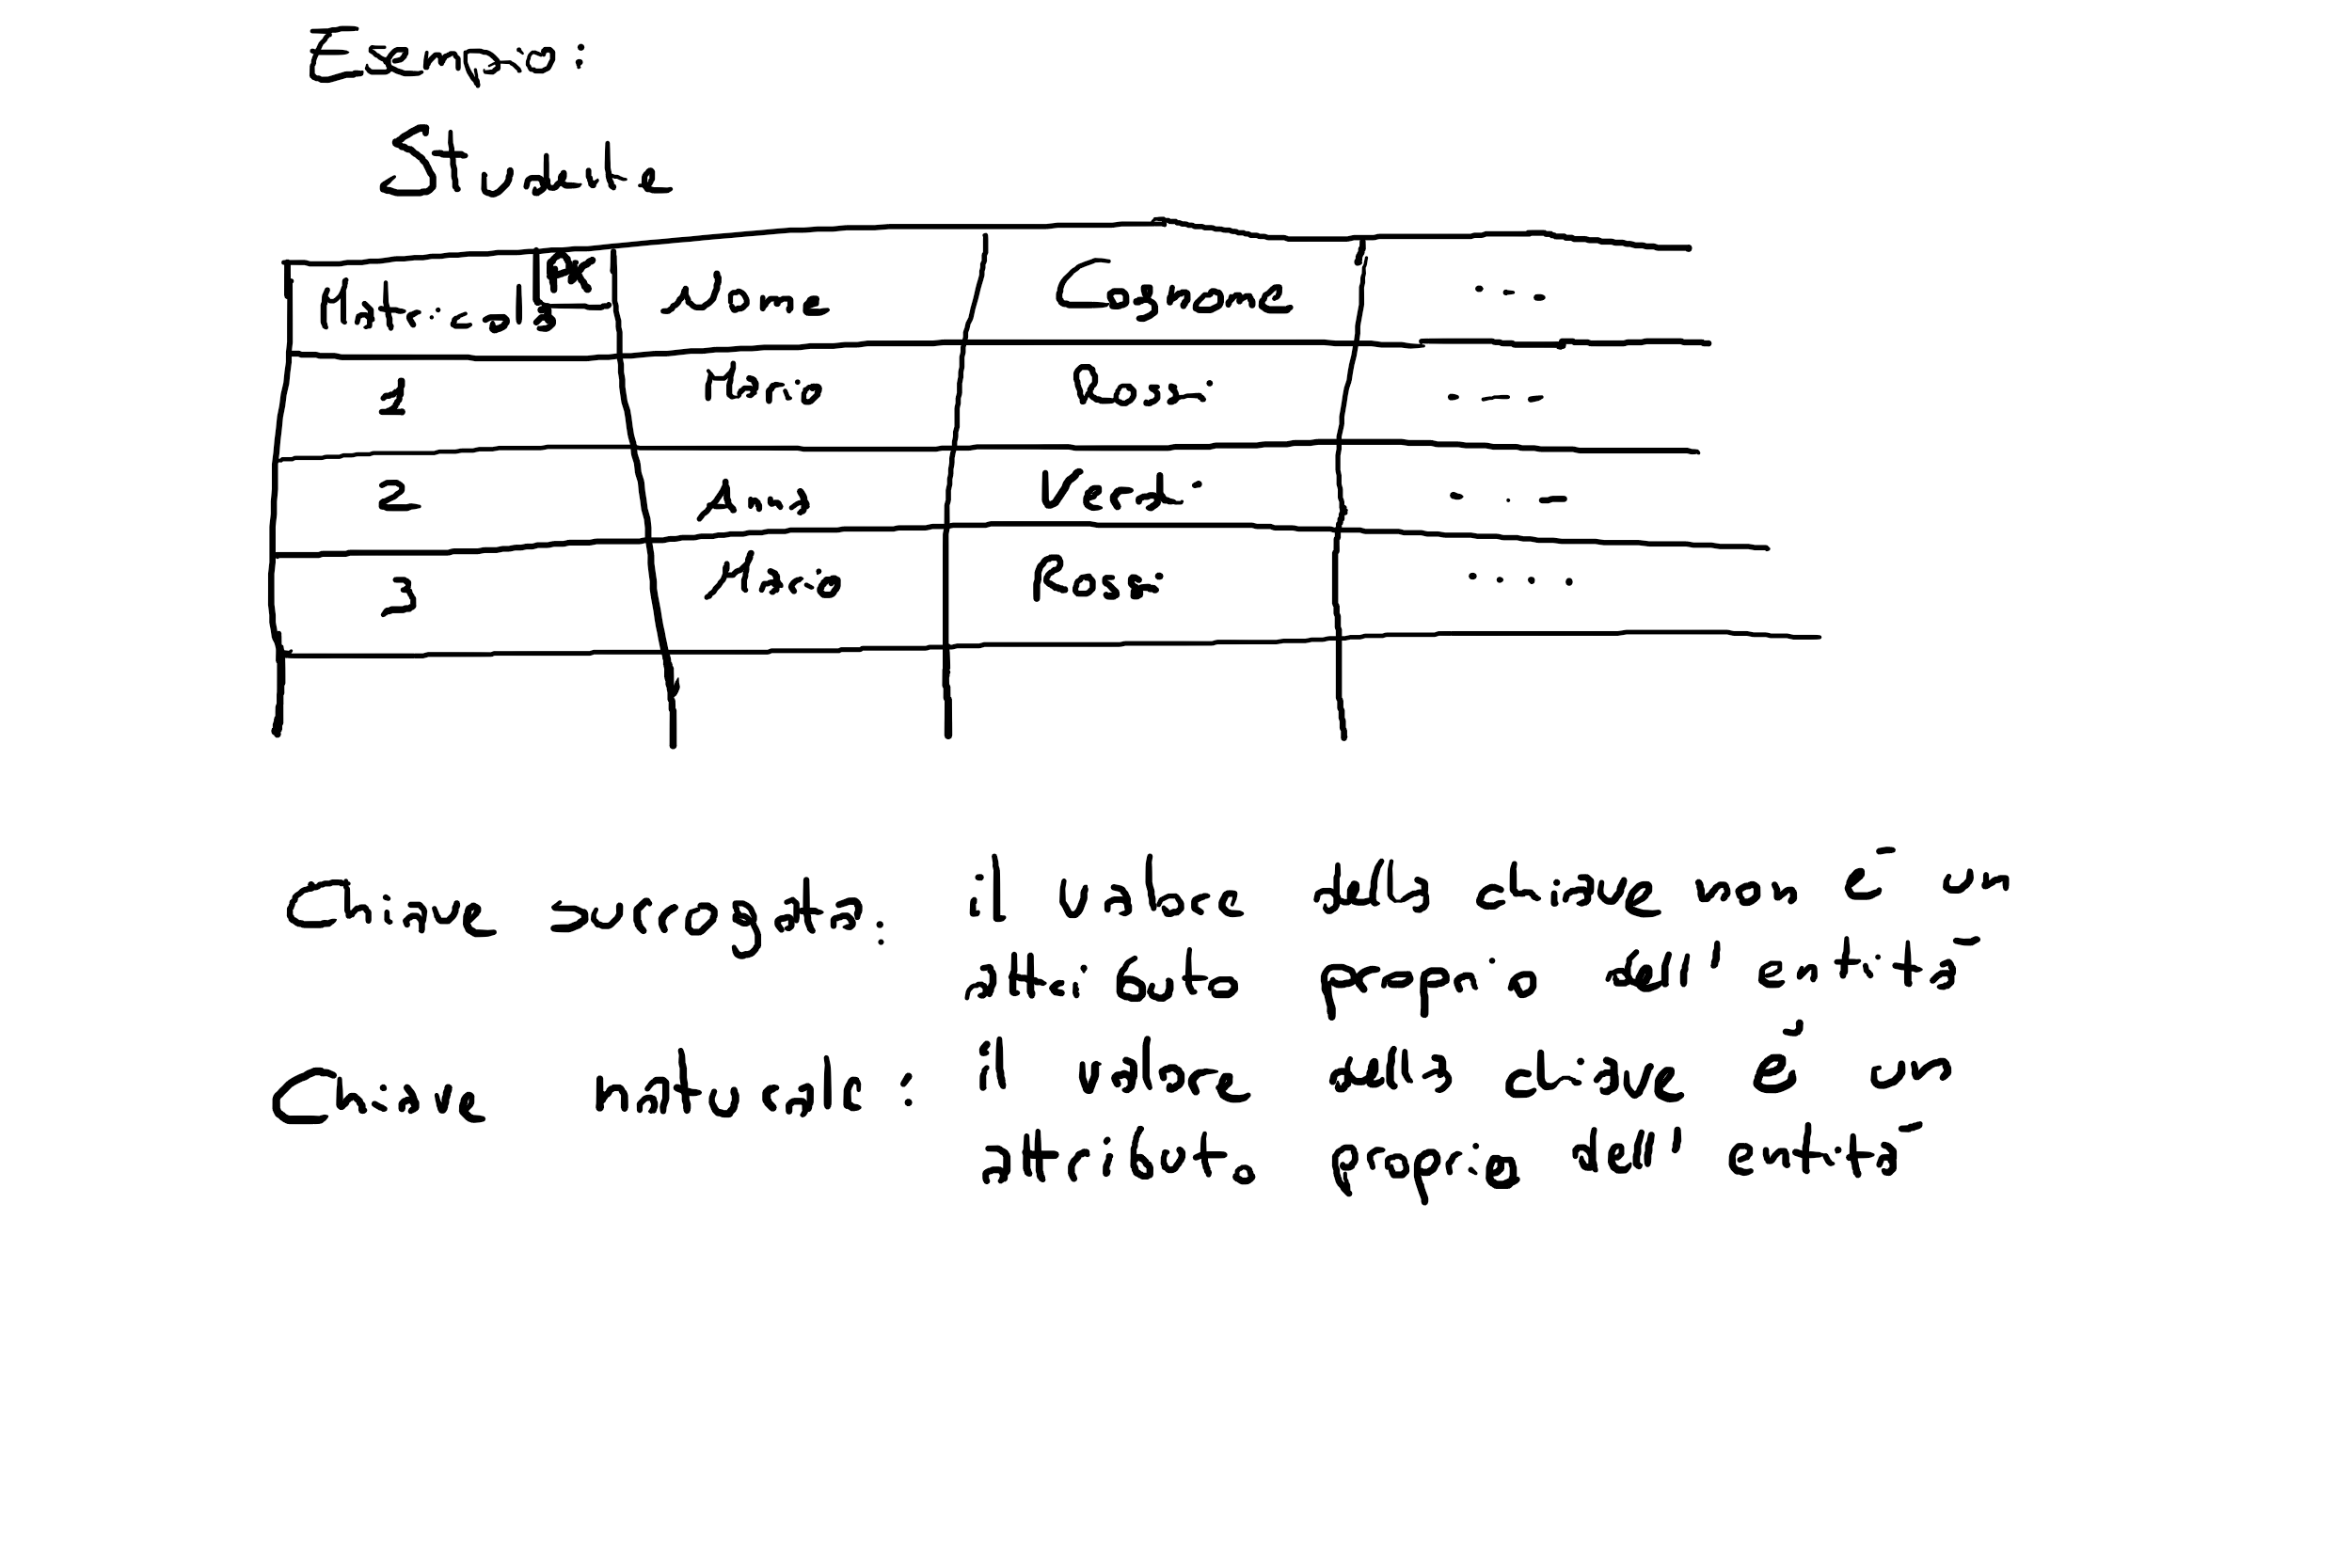 Esempio:
Studente
Matricola PK Nome Cognome ...
1 Mario Rossi ...
2 Anna Verdi ...
3 Mario Rossi ....
Chiave surrogata: il valore della chiave non è un
attributo proprio dell'entità
Chiave naturale: il valore della chiave è un
attributo proprio dell'entità